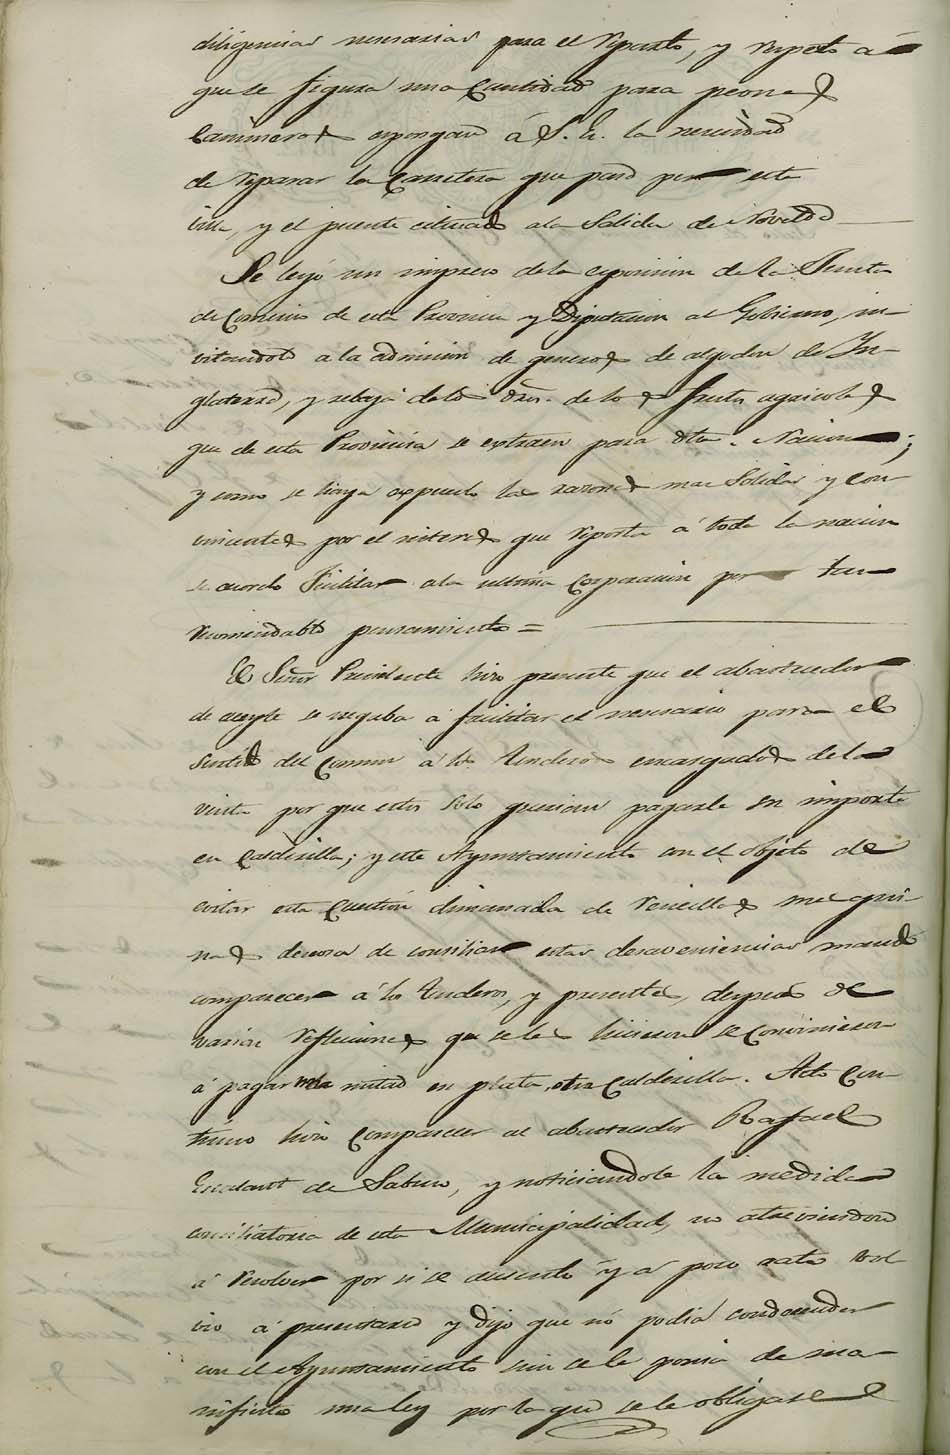 diligencias necesarias para el reparto, y respeto á
que se figura una cantidad para peones
Camineros espongan á S. E. la necesidad
de reparar la Carretera que pasa por esta
villa, y el puente situado ala Salida de Novelda
Se leyó un impreso dela esposicion de la Junta
de Comercio de esta Provincia y Diputacion al Gobierno, in-
vitandole a la admision de generos de algodon de In-
glaterra, y rebaja delos dros. de los frutos agricolas
que de esta Provincia se extraen para dha. Nacion;
y como se haya expuesto las razones mas Solidas y con-
vincentes por el interes que reporta á toda la nacion
se acordo Felicitar ala ultima Corporacion por tan
recomendable pensamiento =
El Señor Presidente hizo presente que el abastecedor
de aceyte se negaba á facilitar el necesario para el
Surtido del Comun á los tenderos encargados dela
venta por que estos solo querian pagarle su importe
en Calderilla; y este Ayuntamiento con el objeto de
evitar esta Cuestion dimanada de rencillas mesqui-
nas deseosa de consiliar estas desaveniencias mandó
comparecer á los tenderos, y presentes, despues de
varias reflecciones que seles hicieron se convinieron
á pagar mitad en plata, otra Calderilla. Acto Con-
tinuo hizo comparecer al abastecedor Rafael
de y noticiandole la medida
conciliatoria de esta Municipalidad, no atreviendose
á resolver por si se ausentó y á poco rato vol-
vio á presentarse y dijo que nó podia condecender
con el Ayuntamiento sin se le ponia de ma-
nifiesto una ley por la que se le obligase